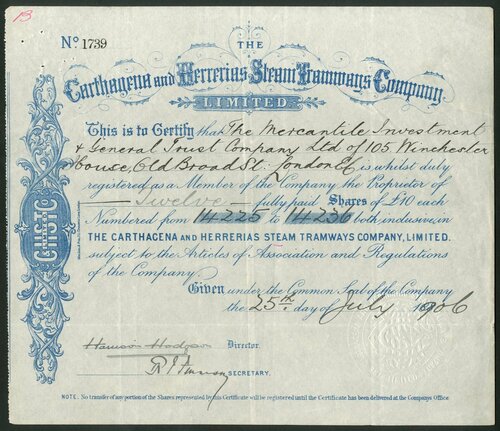 13
Nº 1739
THE
Carthagena and Herrerias Steam Tramways Company
LIMITED.
This is to Certify that The Mercantile Investment
& General Trust Company Ltd of 105 Winchester
House, Old Broad St. London EC is whilst duly
registered as a Member of the Company the Proprietor of
Twelve fully paid Shares of £10 each
Numbered from 14225 to 14236 both inclusive, in
THE CARTHAGENA AND HERRERIAS STEAM TRAMWAYS COMPANY, LIMITED.
subject to the Articles of Association and Regulations
of the Company.
Given under the Common Seal of the Company
the 25th day of July 1906
Harrison Hodgson DIRECTOR.
SECRETARY.
NOTE. No transfer of any portion of the Shares represented by this Certificate will be registered until the Certificate has been delivered at the Company's Office
C.H.S.T.C.